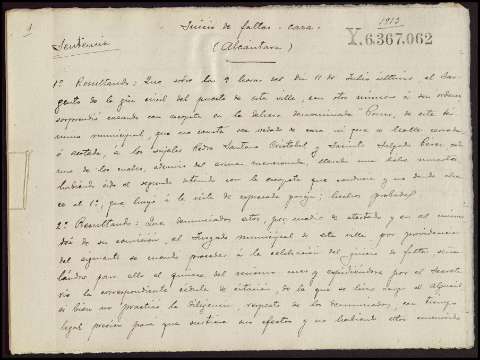 1
1913
Y.6.367.062
Juicio de faltas - caza -
(Alcántara)
Sentencia
1º Resultando: Que sobre las 9 horas del dia 11 de Julio último, el Sar-
gento de la Gua civil del puesto de esta villa, con otros números á sus ordenes
sorprendió cazando con escopeta en la dehesa denominada de este tér-
mino municipal, que no consta sea vedado de caza ni que se halle cercada
ó acotada, á los sujetos Pedro Santano Cristobal y Jacinto Salgado Perez, cada
uno de los cuales, además del arma mencionada, llevaba una
habiendo sido el segundo detenido con la escopeta que conducia y no dando alcan-
ce al 1º, que huyó á la vista de expresada pareja; hechos probados
2º Resultando: Que denunciados estos, por medio de atestado y en el mismo
dia de su comision, el Juzgado municipal de esta villa, por providencia
del siguiente se mandó proceder á la celebración del juicio de faltas, seña-
lándose para ello el quince del mismo mes y expidiendose por el Secreta-
rio la correspondiente cédula de citación, de la que se hizo cargo el Alguacil
si bien no practicó la diligencia, respecto de los denunciados, con tiempo
legal preciso para que surtiera sus efectos y no habiendo estos